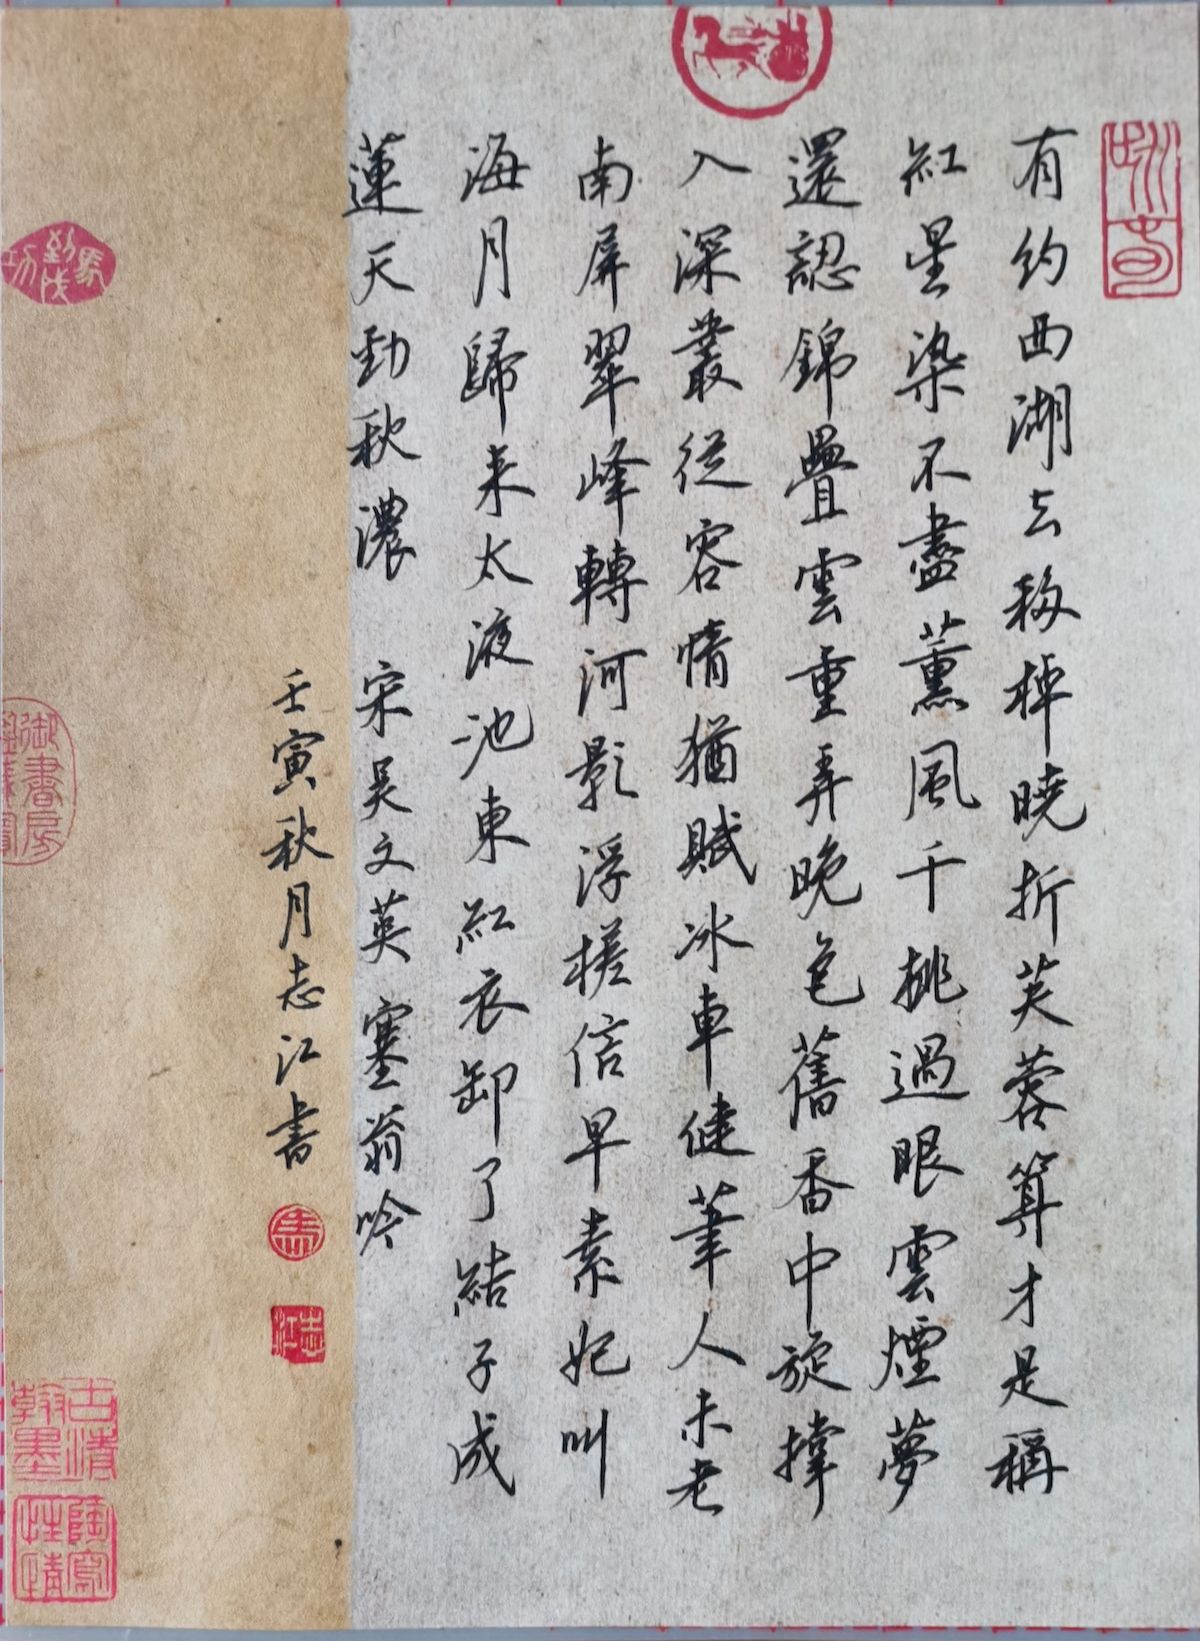 有約西湖去移棹曉折芙蓉算才是稱
紅星染不盡薰風千挑過眼雲煙夢
還認錦疊雲重弄晚色舊香中旋撐
入深叢從容情猶賦冰車健筆人未老
南屏翠峰轉河影浮槎信早素妃叫
海月歸来太液池東紅衣卸了結子成
蓮天勁秋濃 宋吴文英塞翁吟
壬寅秋月志江書
志江
馬到成功
御書房
古清翰墨
陶寫性情